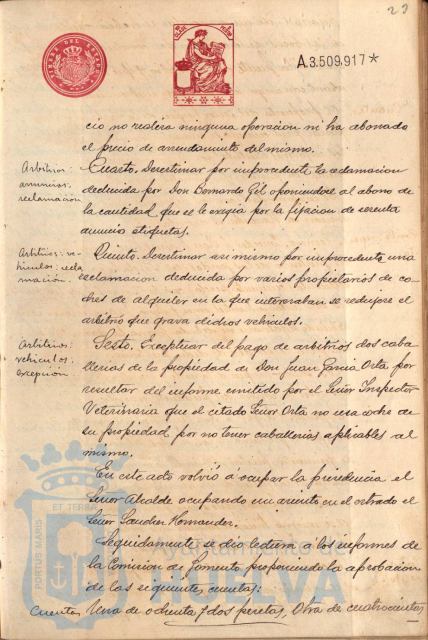 23
TIMBRE DEL ESTADO
A.3.509,917*
cio no realiza ninguna operacion ni ha abonado
el precio de arrendamiento del mismo.
Arbitrios:
anuncios:
reclamacion
Cuarto. Desestimar por improcedente la reclamacion
deducida por Don Bernardo Gil oponiendose al abono de
la cantidad que se le exigia por la fijacion de sesenta
anuncio etiquetas.
Arbitrios: ve-
hiculos: recla
macion.
Quinto. Desestimar asi mismo por improcedente una
reclamacion deducida por varios propietarios de co-
ches de alquiler en la que interesaban se redujese el
arbitrio que grava dichos vehiculos.
Arbitrios:
vehiculos:
excepcion
Sesto. Exceptuar del pago de arbitrios dos caba-
llerias de la propiedad de Don Juan Garcia Orta por
resultar del informe emitido por el Señor Inspector
Veterinario que el citado Señor Orta no usa coche de
su propiedad por no tener caballerias aplicables al
mismo.
En este acto volvió á ocupar la presidencia el
Señor Alcalde ocupando su asiento en el estrado el
Señor Sanchez Hernandez.
Seguidamente se dio lectura á los informes de
la Comision de Fomento proponiendo la aprobacion
de las siguientes cuentas:
Cuentas
Una de ochenta y dos pesetas, Otra de cuatrocientas
PORTUS MARIS
ET TERRAE
Ayuntamiento de
HUELVA